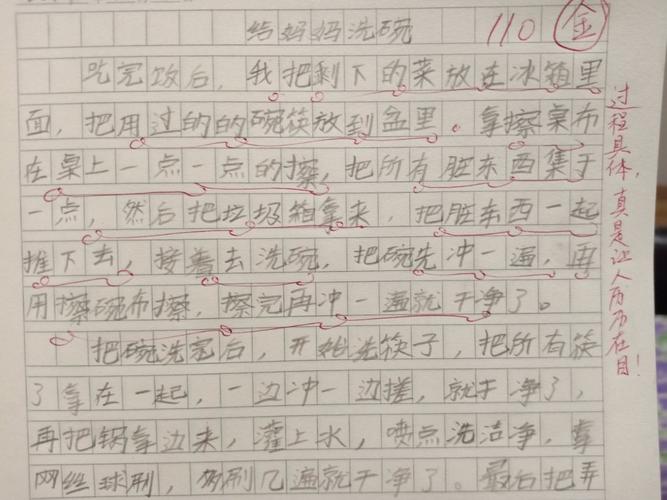 给妈妈洗碗
110 金
吃完饭后，我把剩下的菜放在冰箱里
面，把用过的的碗筷放到盆里。拿擦桌布
在桌上一点一点的擦，把所有脏东西集于
一点，然后把垃圾箱拿来，把脏东西一起
推下去，接着去洗碗，把碗先冲一遍，再
用擦碗布擦，擦完再冲一遍就干净了。
把碗洗完后，开始洗筷子，把所有筷
子拿在一起，一边冲一边搓，就干净了，
再把锅拿过来，灌上水，喷点洗洁净，拿
网丝球刷，刷几遍就干净了。最后把弄
过程具体，真是让人历历在目！